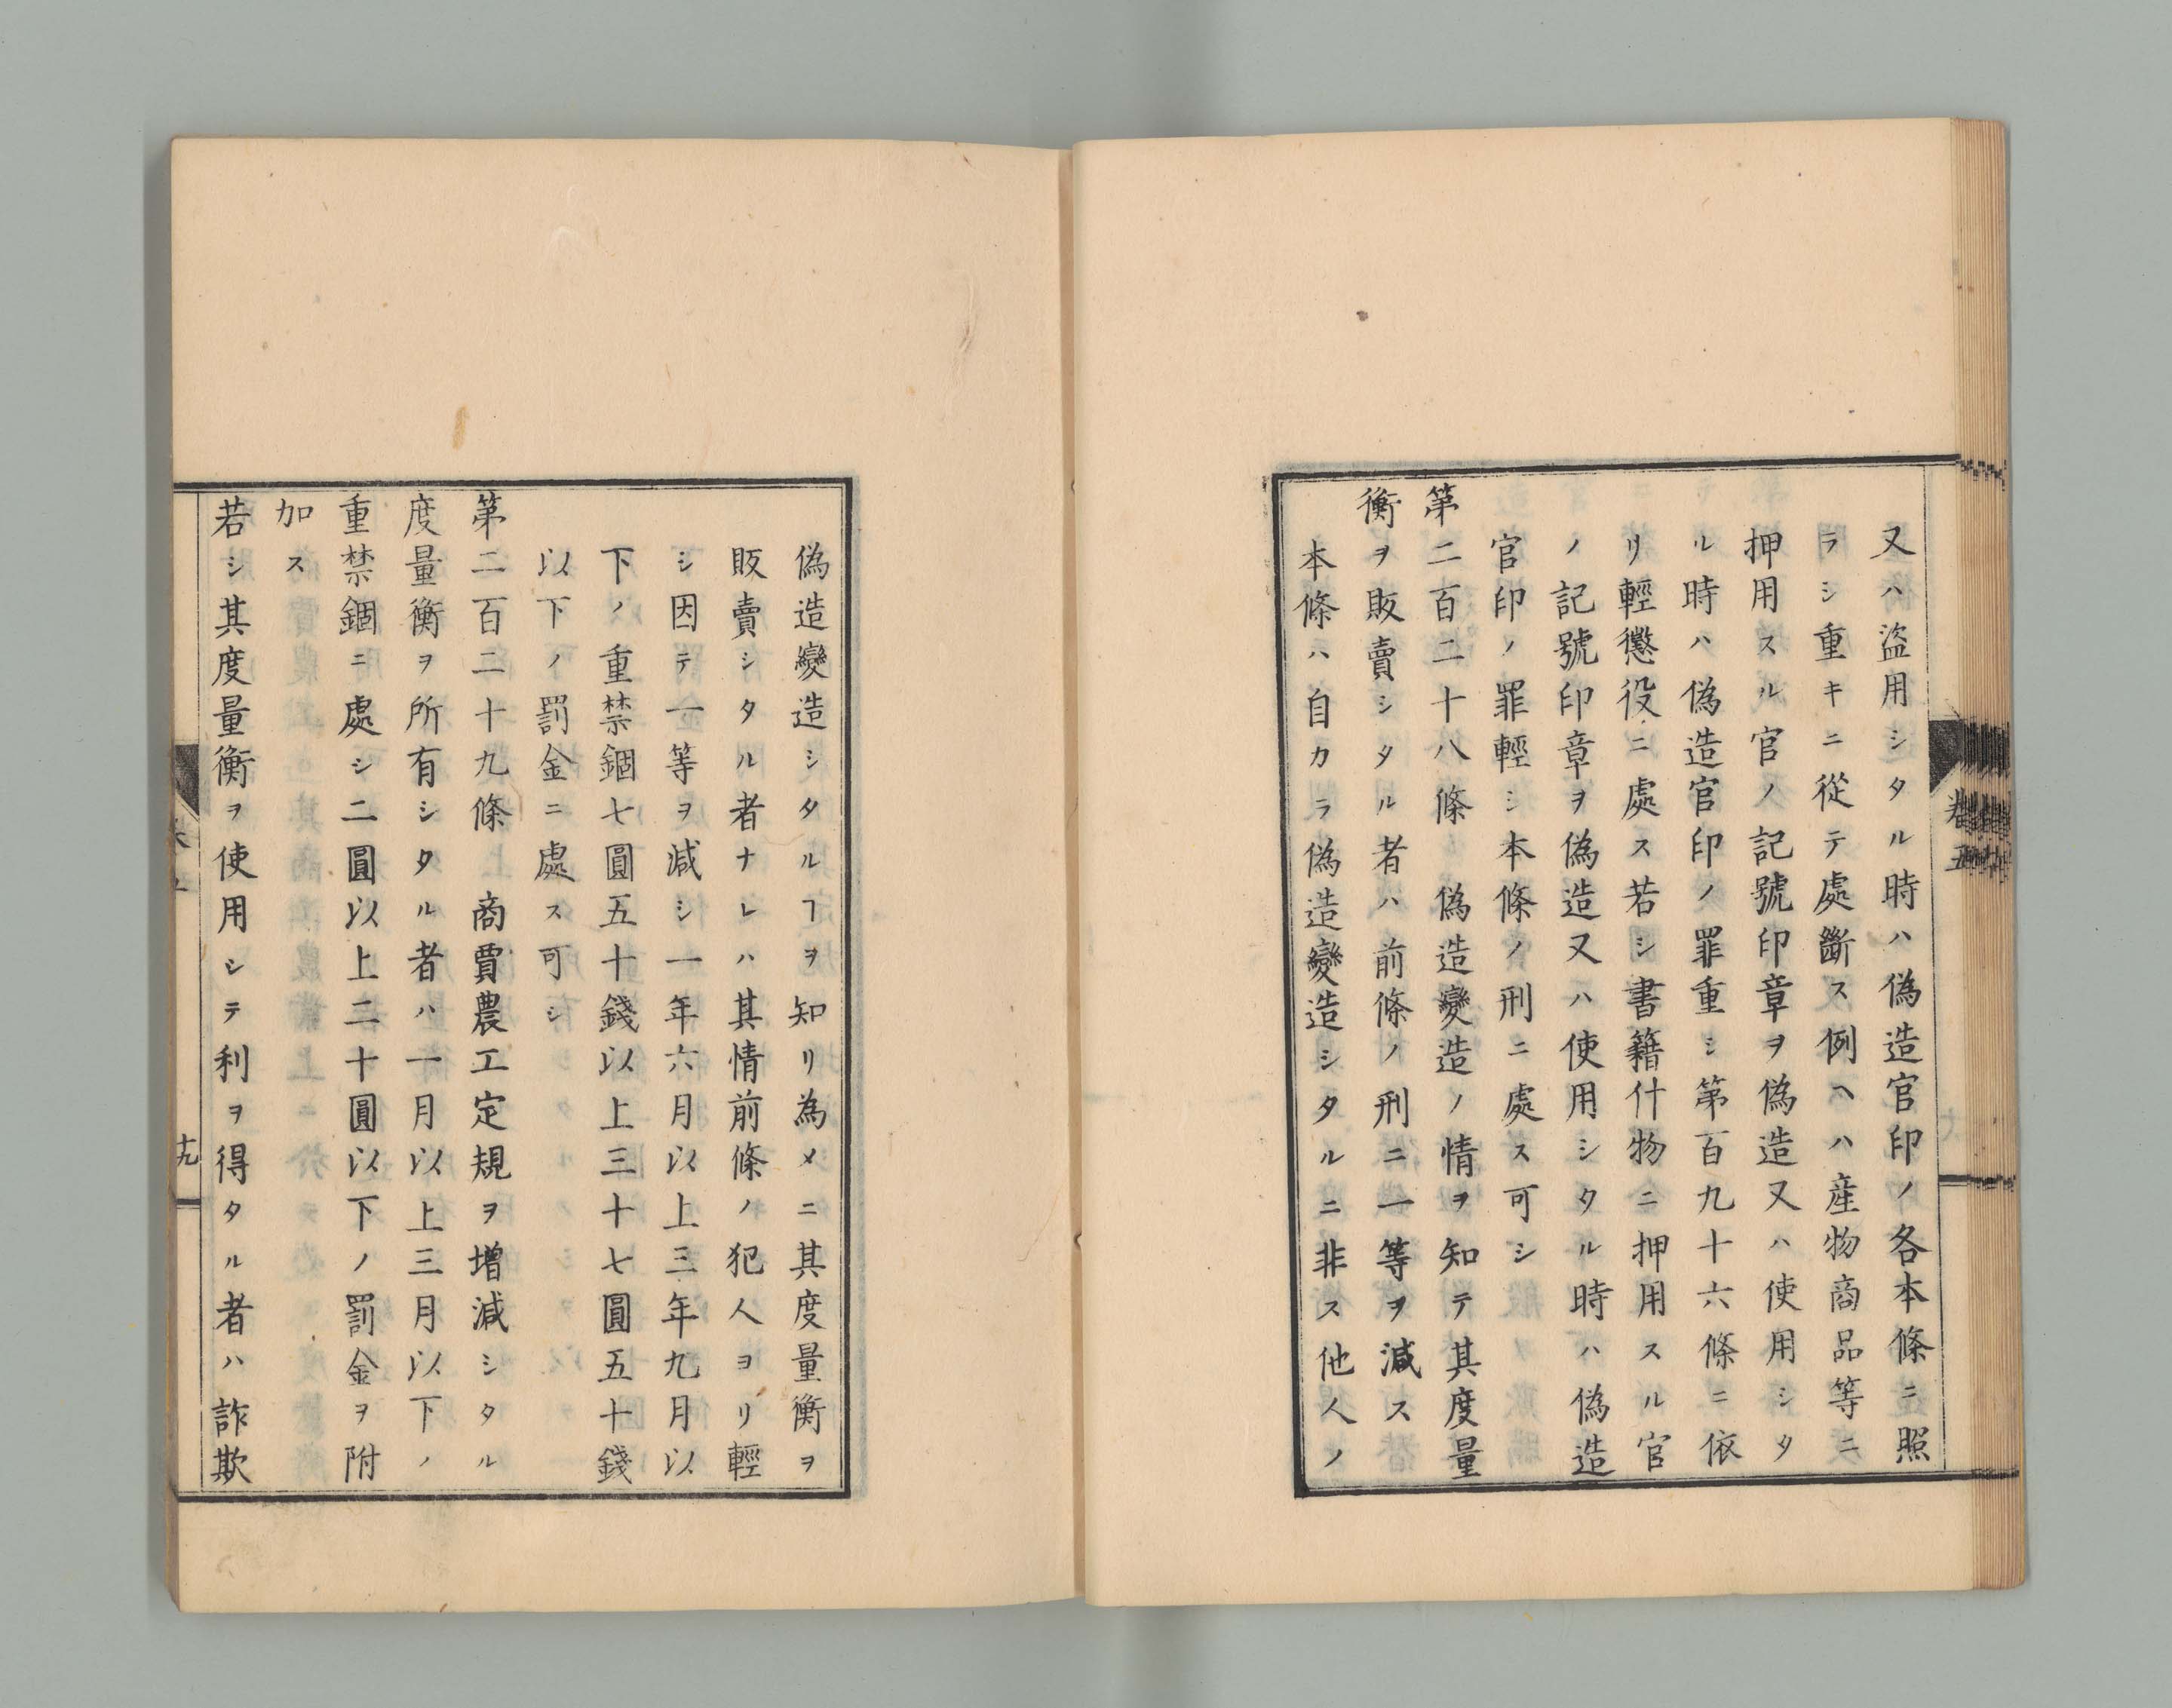 又ハ盗用シタル時ハ偽造官印ノ各本條ニ照
ラシ重キニ從テ處斷ス例ヘハ産物商品等ニ
押用スル官ノ記號印章ヲ偽造又ハ使用シタ
ル時ハ偽造官印ノ罪重シ第百九十六條ニ依
リ輕懲役ニ處ス若シ書籍什物ニ押用スル官
ノ記號印章ヲ偽造又ハ使用シタル時ハ偽造
官印ノ罪輕シ本條ノ刑ニ處ス可シ
第二百二十八條 偽造變造ノ情ヲ知テ其度量
衡ヲ販賣シタル者ハ前條ノ刑ニ一等ヲ減ス
本條ハ自カラ偽造變造シタルニ非ス他人ノ
偽造變造シタルヿヲ知リ為メニ其度量衡ヲ
販賣シタル者ナレハ其情前條ノ犯人ヨリ輕
シ因テ一等ヲ減シ一年六月以上三年九月以
下ノ重禁錮七圓五十錢以上三十七圓五十錢
以下ノ罰金ニ處ス可シ
第二百二十九條 商賈農工定規ヲ增減シタル
度量衡ヲ所有シタル者ハ一月以上三月以下ノ
重禁錮ニ處シ二圓以上二十圓以下ノ罰金ヲ附
加ス
若シ其度量衡ヲ使用シテ利ヲ得タル者ハ詐欺
十九